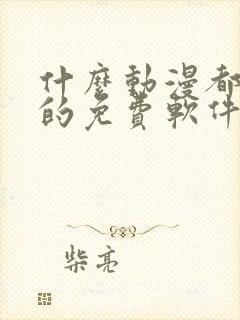 什麼動漫都
的免費軟件
柴亮